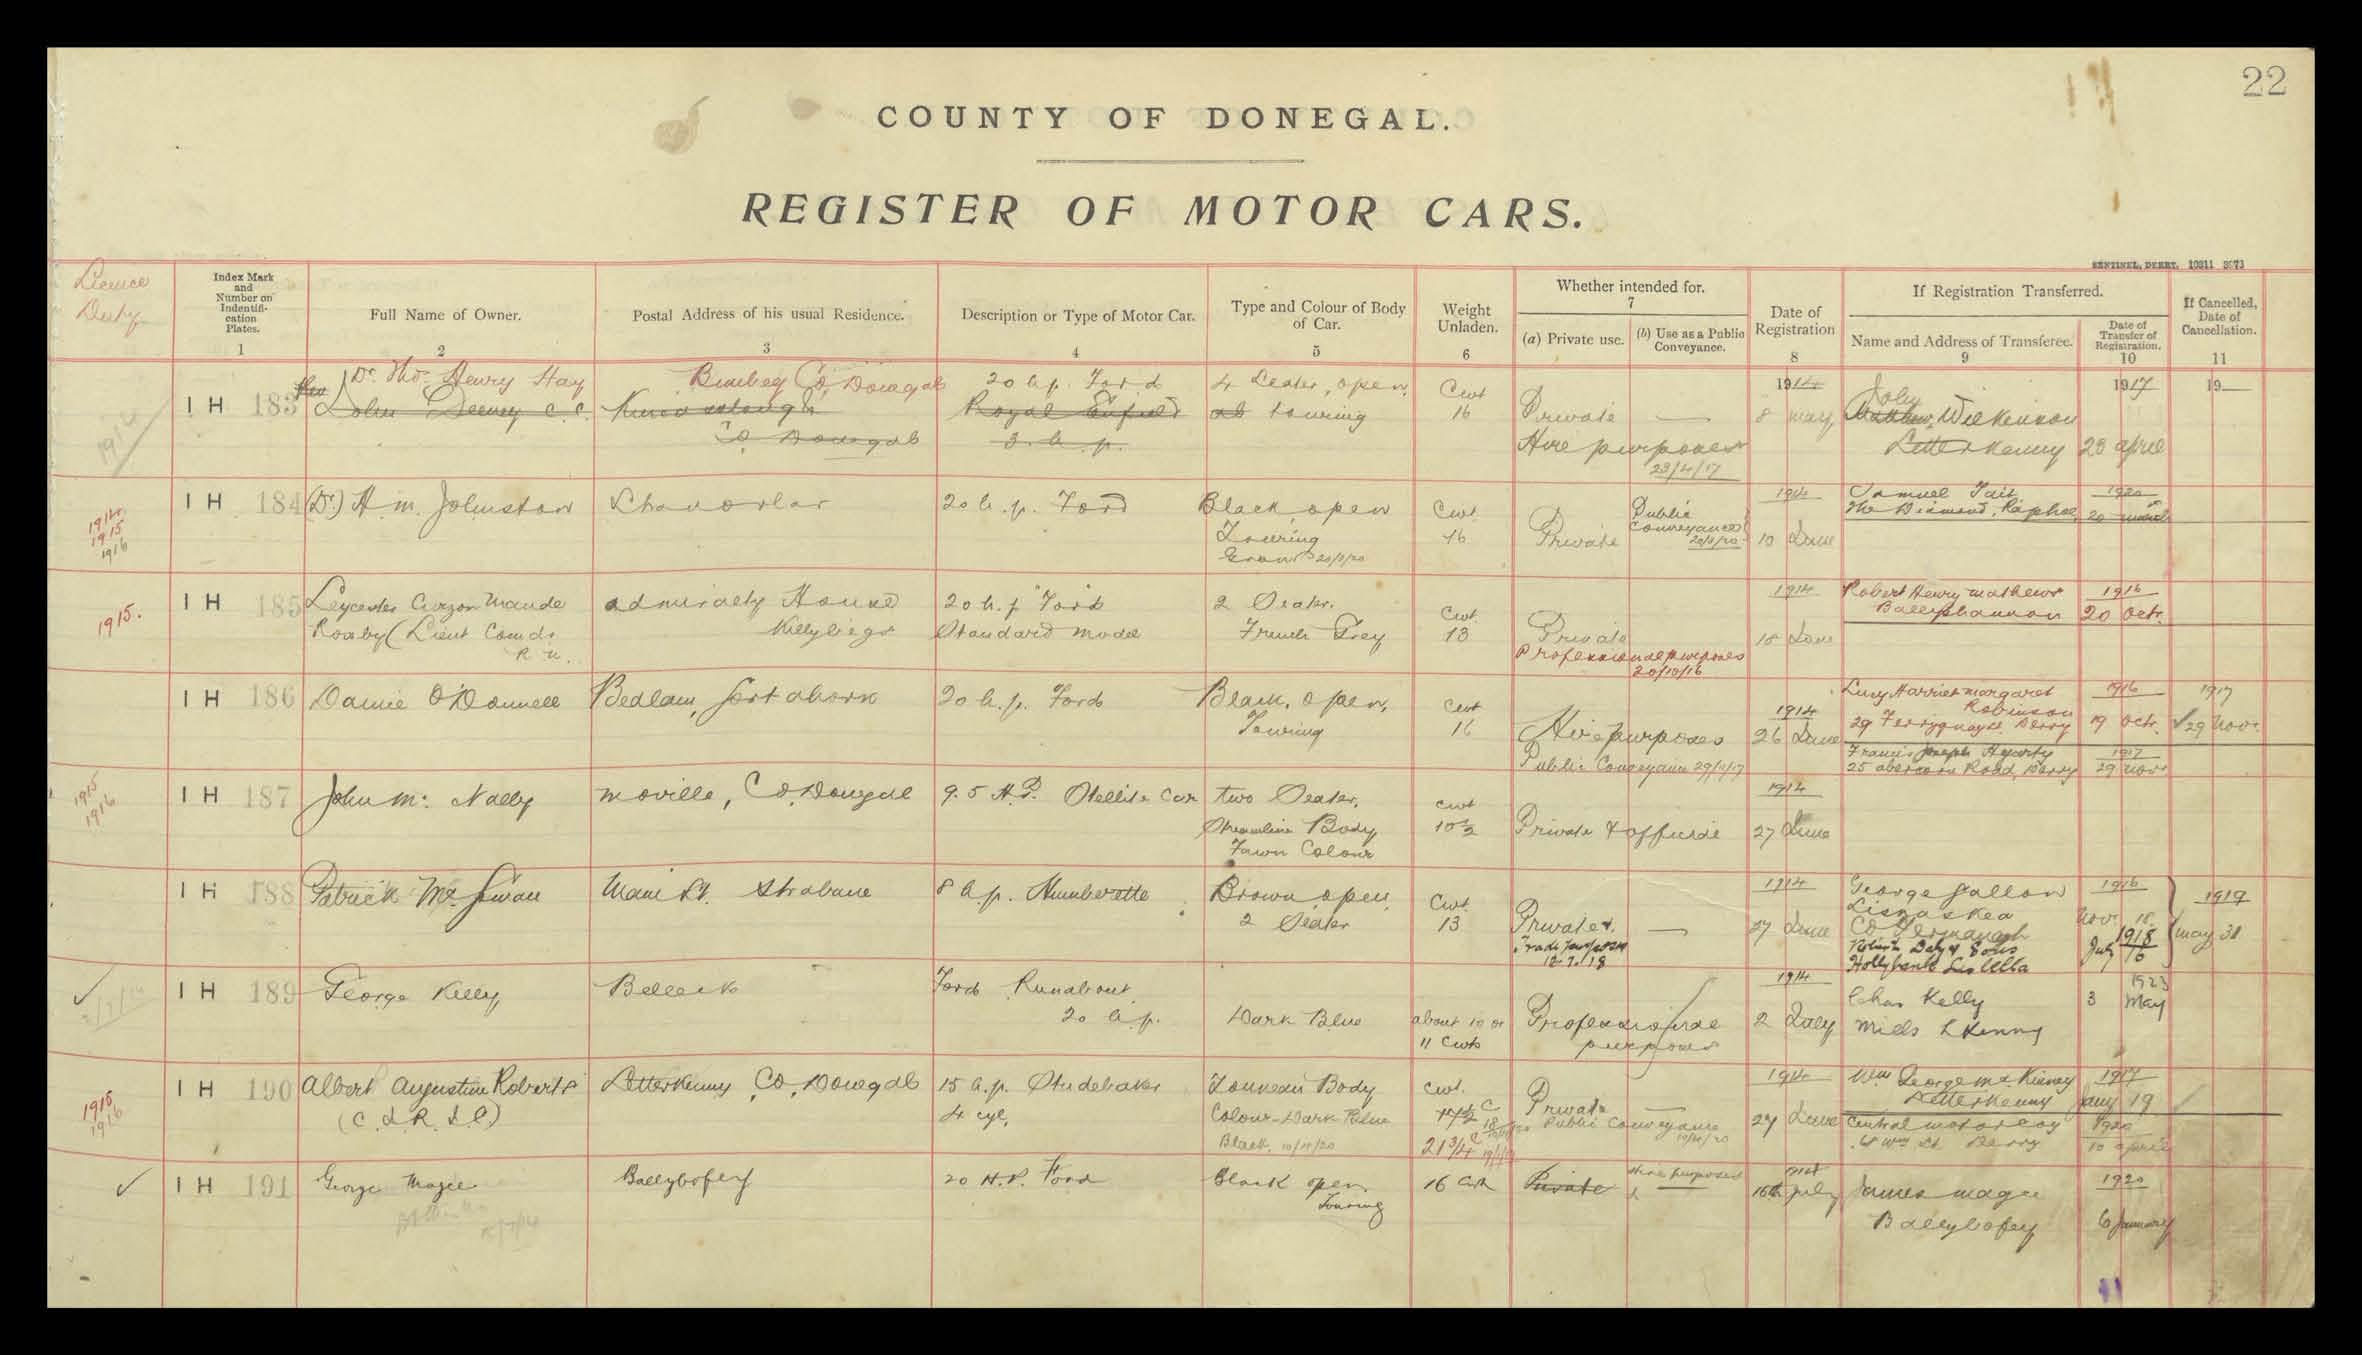 22
COUNTY OF DONEGAL.
REGISTER OF MOTOR CARS.
SENTINEL, DERRY. 10311 3973
Licence
Duty
Index Mark
and
Number on
Indentifi-
cation
Plates.
1
Full Name of Owner.
2
Postal Address of his usual Residence.
3
Description or Type of Motor Car.
4
Type and Colour of Body
of Car.
5
Weight
Unladen.
6
Whether intended for.
7
(a) Private use.
(b) Use as a Public
Conveyance.
Date of
Registration
8
If Registration Transferred.
Name and Address of Transferee.
9
Date of
Transfer of
Registration.
10
If Cancelled,
Date of
Cancellation.
11
1914
I H 183
Dr. Thos. Henry Hay
John Deeney C.C.
Co Donegal
Co Donegal
20 h.p. Ford
Royal Enfield
3 h.p.
4 Seater, open,
touring
Cwt
16
Private
Hire purposes
23/4/17
1914
8 May
John
Matthew Wilkinson
Letterkenny
1917
23 April
19
1914
1915
1916
I H 184
(Dr.) H. M. Johnston
20 h.p. Ford
Black, open
Touring
20/3/20
Cwt
16
Private
Public
Conveyance
20/3/20
1914
10 June
Samuel Tait
The Diamond, Raphoe
1920
20 March
1915.
I H 185
Leycester Curzon Maude
Roxby (Lieut Comdr.
R.N.
Admiralty House
Killybegs
20 h.p. Ford
Standard Model
2 Seater.
French Grey
Cwt
13
Private
Professional purposes
20/10/16
1914
18 June
Robert Henry Mathews
Ballyshannon
1916
20 Octr.
I H 186
O'Donnell
Bedlam, Gortahork
20 h.p. Ford
Black, open,
Touring
Cwt
16
Hire purposes
Public Conveyance 29/11/17
1914
26 June
Lucy Harriet Margaret
Robinson
29 Ferryquay St. Derry
1916
19 Octr.
Francis Joseph Hegarty
25 Abercorn Road, Derry
1917
29 Novr
1917
29 Novr.
1915
1916
I H 187
John Mc. Nally
Moville, Co. Donegal
9.5 H.P. Stellite Car
Two Seater,
Streamline Body
Fawn Colour
Cwt
10½
Private &
1914
27 June
I H 188
Patrick McGowan
Main St. Strabane
8 h.p. Humberette
Brown, open,
2 Seater
Cwt
13
Private &
Trade purposes
18.7.18
1914
27 June
George Gallon
Lisnaskea
Co Fermanagh
Robert Daly & Sons
Hollybank Lislella
1916
Novr. 18
1918
July 16
1919
May 31
I H 189
George Kelly
Belleek
Ford Runabout
20 h.p.
Dark Blue
about 10 or
11 Cwts
Professional
purposes
1914
2 July
Chas Kelly
Mills LKenny
1923
3 May
1915
1916
I H 190
Albert Augustine Roberts
(C.I.R.I.C)
Letterkenny, Co. Donegal
15 h.p. Studebaker
4 cyl.
Tonneau Body
Colour-Dark Blue
Black. 10/4/20
Cwt.
17½ C
21¾ C
Private
Public Conveyance
10/4/20
1914
27 June
Wm George McKinney
Letterkenny
1917
Jany 19
Central Motor Coy
Wm St. Derry
1920
10 April
I H 191
George Magee
Ballybofey
20 H.P. Ford
Black open
Touring
16 Cwt
Private
Hire purposes
1914
16th July
James Magee
Ballybofey
1920
6 January